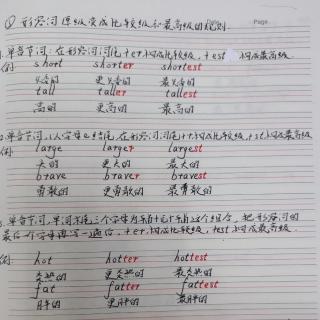 Page
① 形容词原级变成比较级和最高级的规则.
1.单音节词:在形容词词尾+er构成比较级,+est 构成最高级.
例: short shorter shortest
矮的 更矮的 最矮的
tall taller tallest
高的 更高的 最高的
单音节词,以字母e结尾,在形容词词尾+r构成比较级,+st构成最高级.
例: large larger largest
大的 更大的 最大的
brave braver bravest
勇敢的 更勇敢的 最勇敢的
单音节词,单词末尾三个字母为辅+元+辅这个组合,把形容词的
最后一个字母再写一遍后,+er构成比较级,+est构成最高级.
例: hot hotter hottest
炎热的 更炎热的 最炎热的
fat fatter fattest
胖的 更胖的 最胖的